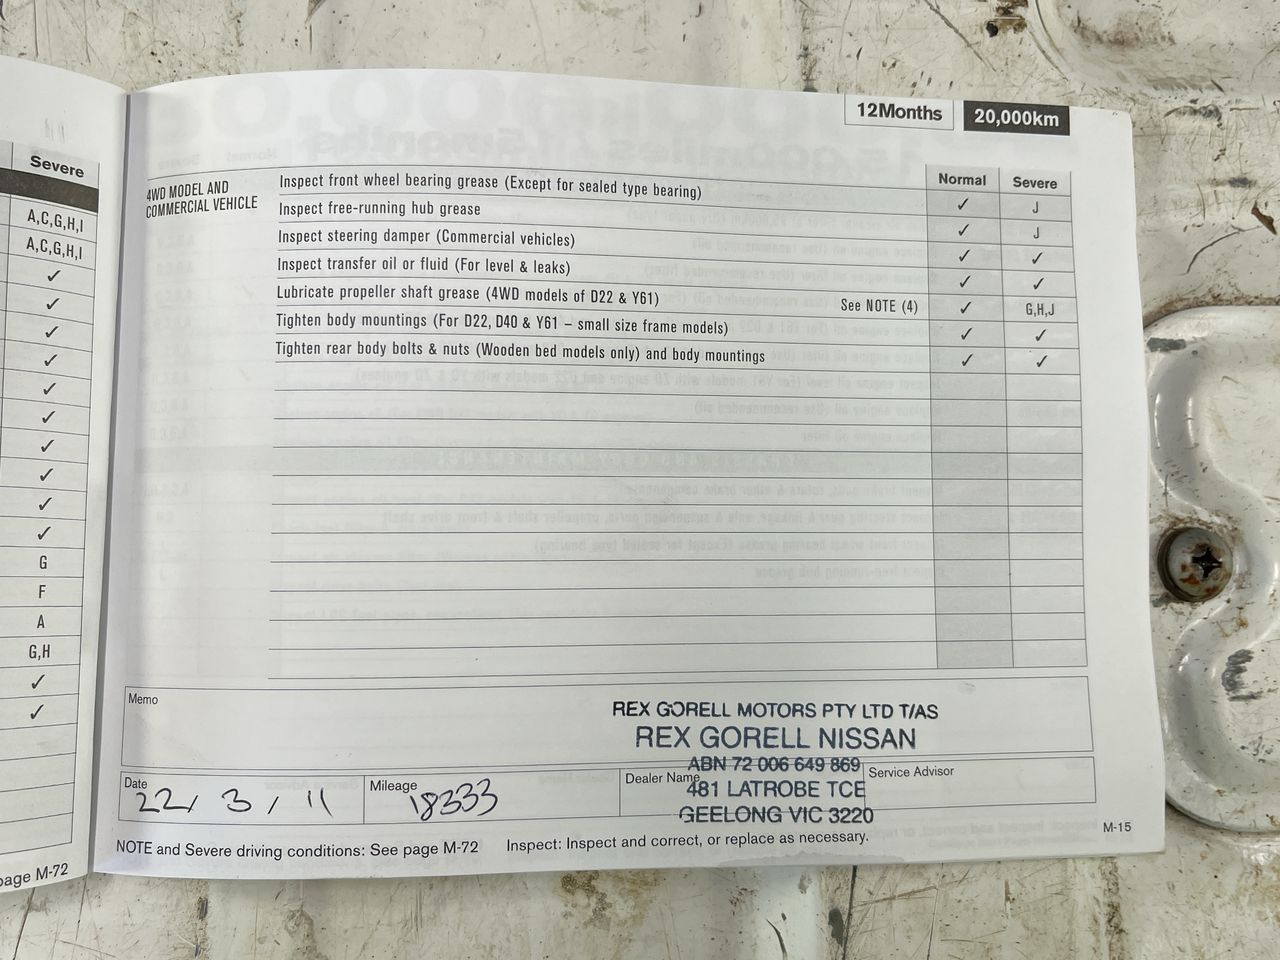 Severe
A,C,G,H,I
A,C,G,H,I
✓
✓
✓
✓
✓
✓
✓
✓
✓
✓
G
F
A
G,H
✓
✓
page M-72
12Months 20,000km
Normal Severe
4WD MODEL AND
COMMERCIAL VEHICLE
Inspect front wheel bearing grease (Except for sealed type bearing) ✓ J
Inspect free-running hub grease ✓ J
Inspect steering damper (Commercial vehicles) ✓ ✓
Inspect transfer oil or fluid (For level & leaks) ✓ ✓
Lubricate propeller shaft grease (4WD models of D22 & Y61) See NOTE (4) ✓ G,H,J
Tighten body mountings (For D22, D40 & Y61 – small size frame models) ✓ ✓
Tighten rear body bolts & nuts (Wooden bed models only) and body mountings ✓ ✓
Memo
REX GORELL MOTORS PTY LTD T/AS
REX GORELL NISSAN
ABN 72 006 649 869
481 LATROBE TCE
GEELONG VIC 3220
Date
22/ 3 / 11
Mileage
18333
Dealer Name
Service Advisor
NOTE and Severe driving conditions: See page M-72 Inspect: Inspect and correct, or replace as necessary.
M-15